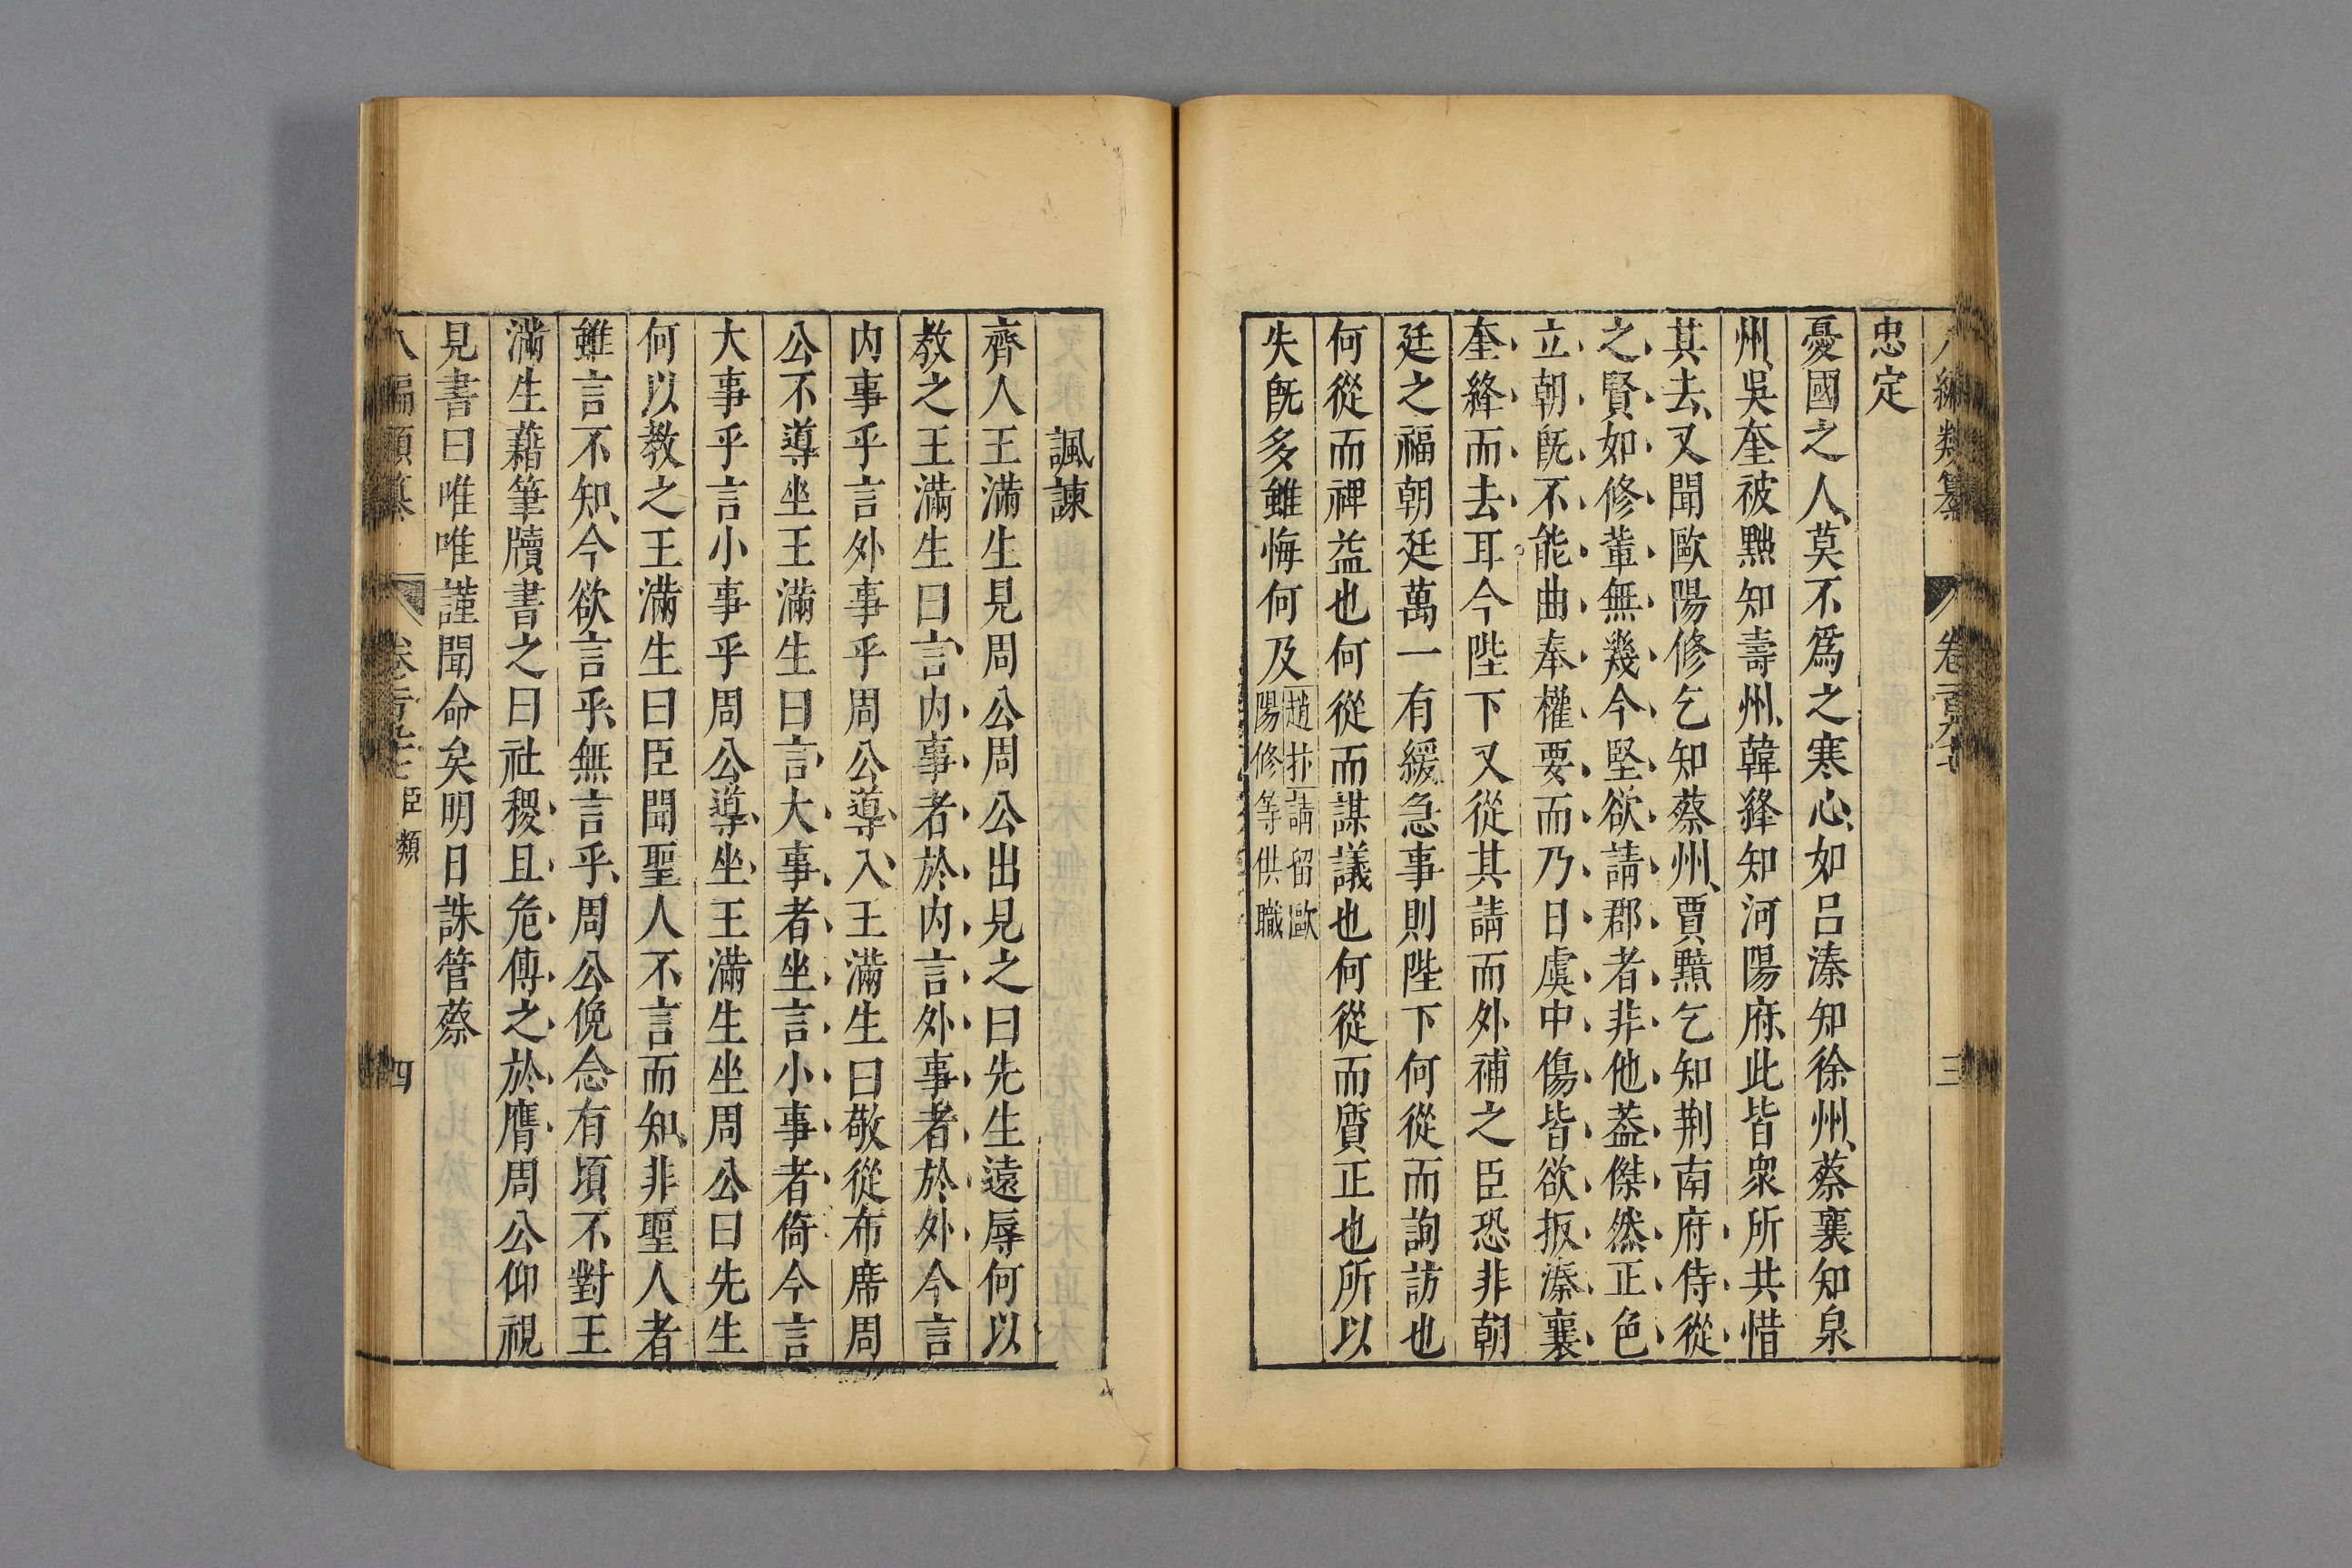 忠定
憂國之人莫不爲之寒心如呂溱知徐州蔡襄知泉
州吳奎被黜知壽州韓絳知河陽府此皆衆所共惜
其去又聞歐陽修乞知蔡州賈黯乞知荆南府侍從
之賢如修輩無幾今堅欲請郡者非他葢傑然正色
立朝旣不能曲奉權要而乃日虞中傷皆欲扳溱襄
奎絳而去耳今陛下又從其請而外補之臣恐非朝
廷之福朝廷萬一有緩急事則陛下何從而詢訪也
何從而裨益也何從而謀議也何從而質正也所以
失旣多雖悔何及趙抃請留歐
陽修等供職
諷諫
齊人王滿生見周公周公出見之曰先生遠辱何以
教之王滿生曰言內事者於內言外事者於外今言
內事乎言外事乎周公導入王滿生曰敬從布席周
公不導坐王滿生曰言大事者坐言小事者倚今言
大事乎言小事乎周公導坐王滿生坐周公曰先生
何以教之王滿生曰臣聞聖人不言而知非聖人者
雖言不知今欲言乎無言乎周公俛念有頃不對王
滿生藉筆牘書之曰社稷且危傅之於膺周公仰視
見書曰唯唯謹聞命矣明日誅管蔡
臣類
四